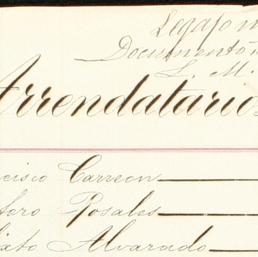 Legajo n
Documento n
L. M.
Arrendatario
cisco Carreon
foro Rosales
ixto Alvarado